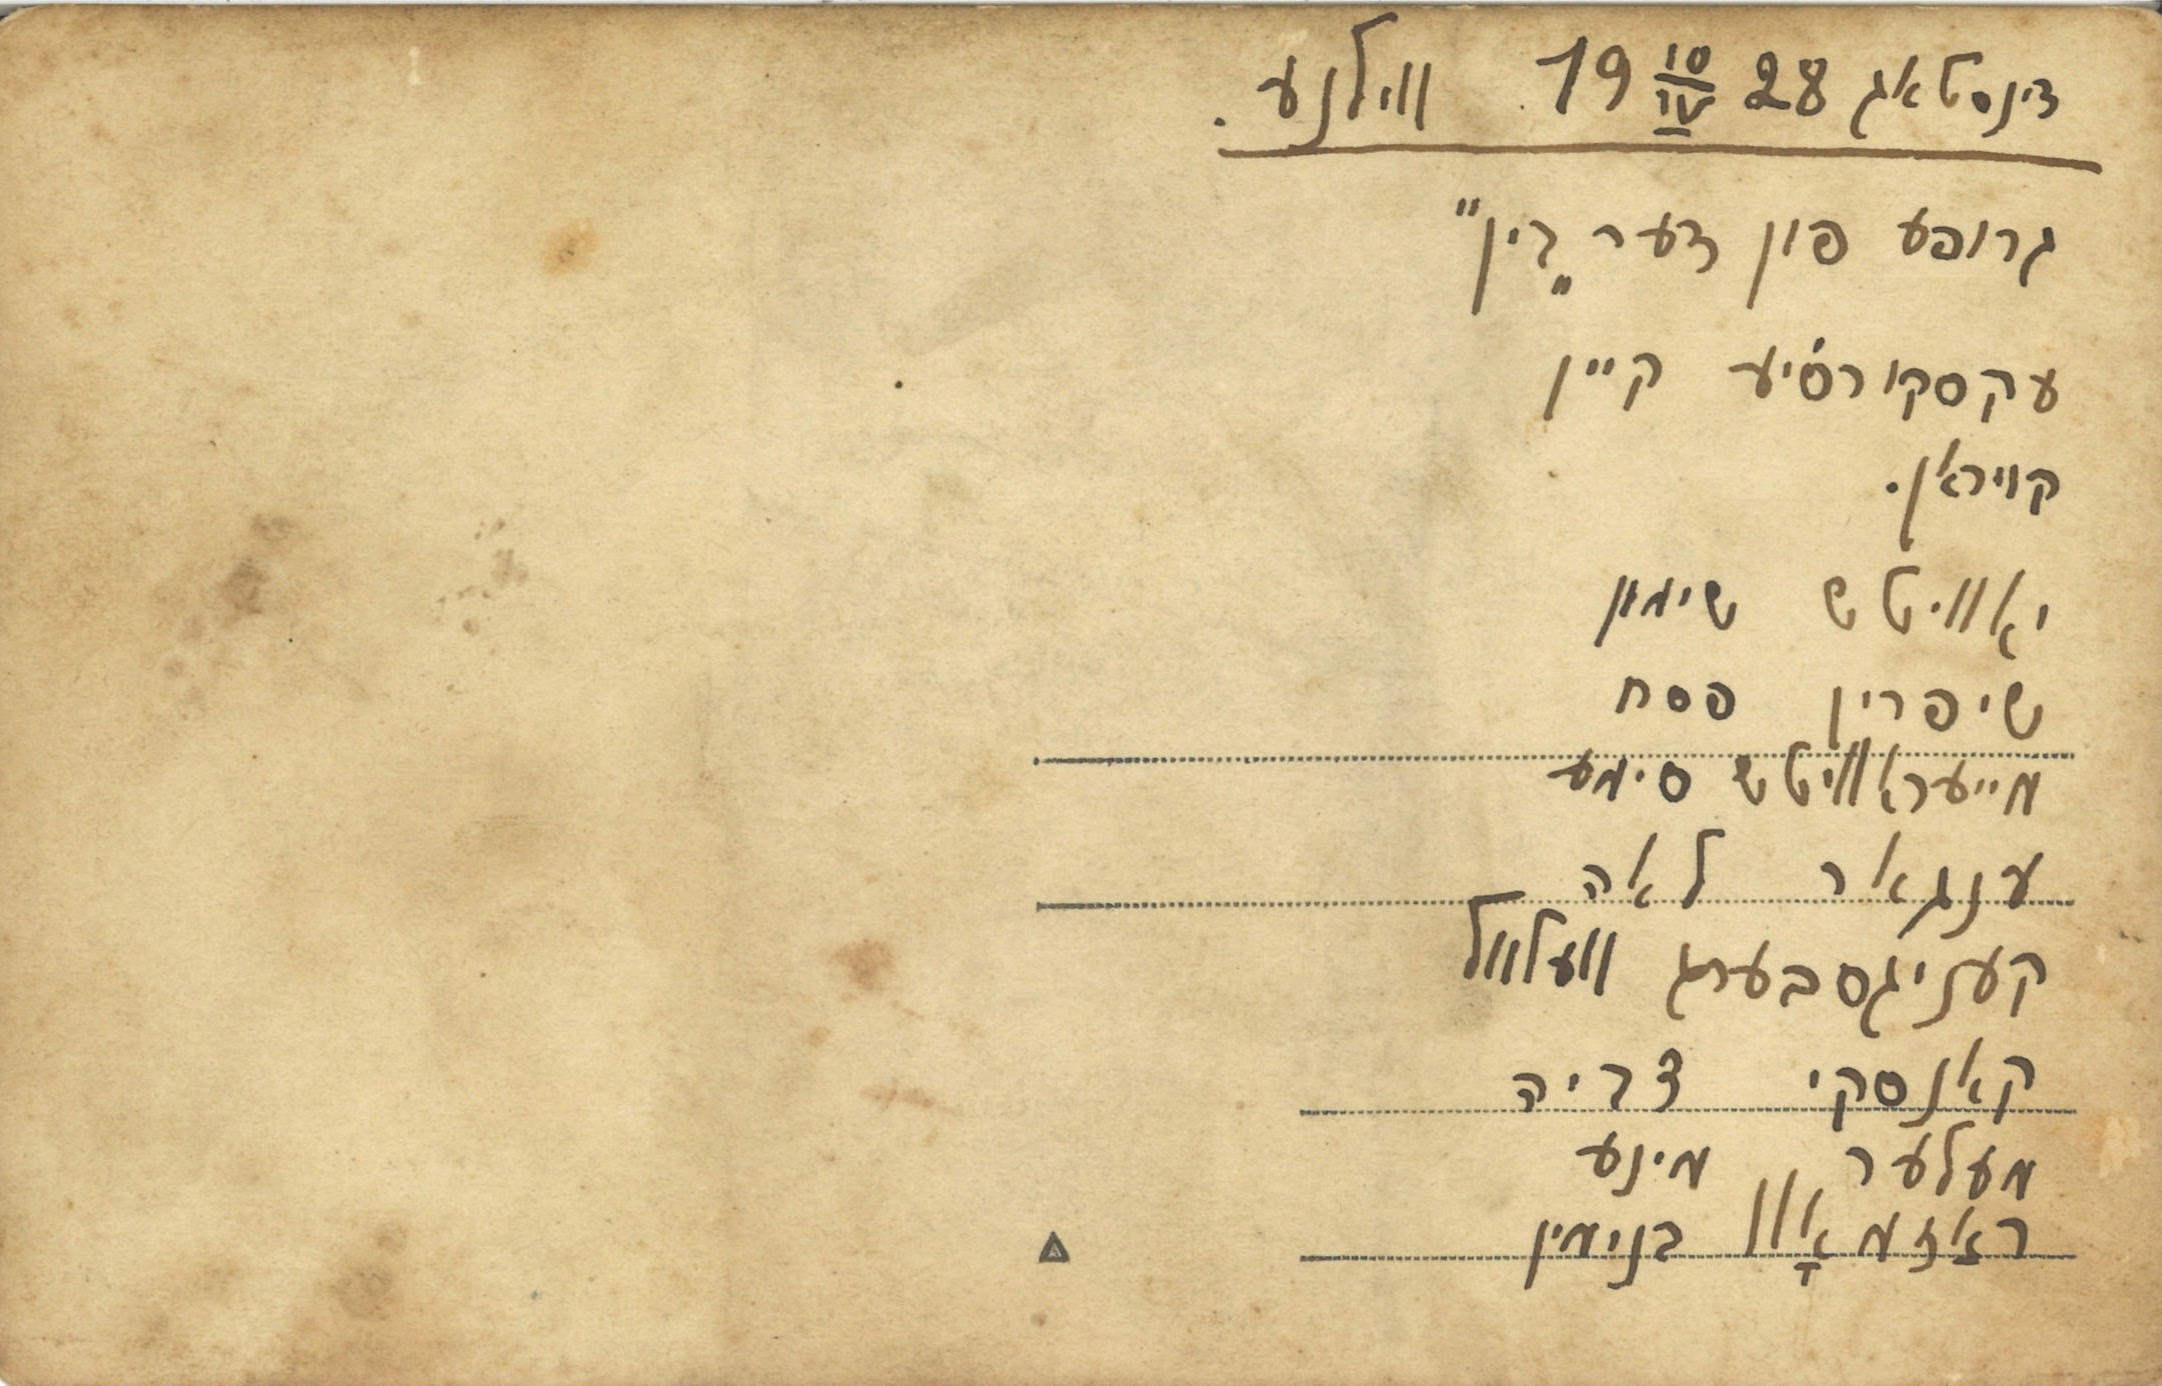 דינסטאג 19 10/IV 28 ווילנע.
גרופע פון דער „בין"
עקסקורסיע קיין
קויראן.
יאוויטש שימון
שיפרין פסח
מייעראוויטש סימע
ענגאר לאה
קעניגסבערג וועלוול
קאנסקי צביה
מעלער מינע
ראזמאָוו בנימין